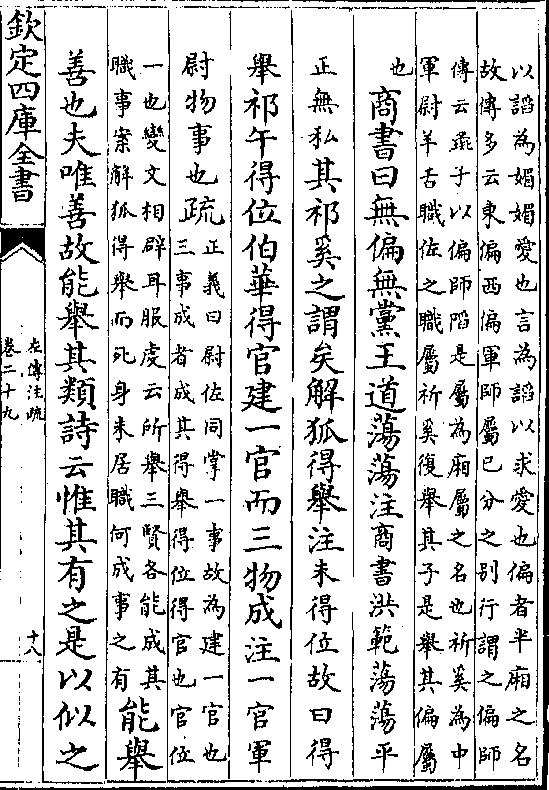 以謟為媚媚愛也言為謟以求愛也偏者半廂之名
故傳多云東偏西偏軍師屬已分之别行謂之偏師
傳云彘子以偏師陷是屬為廂屬之名也祈奚為中
軍尉羊舌職佐之職屬祈奚復舉其子是舉其偏屬
也
商書曰無偏無黨王道蕩蕩注商書洪範蕩蕩平
正無私其祁奚之謂矣解狐得舉注未得位故曰得
舉祁午得位伯華得官建一官而三物成注一官軍
尉物事也疏正義曰尉佐同掌一事故為建一官也
三事成者成其得舉得位得官也官位
一也變文相辟耳服虔云所舉三賢各能成其
職事案解狐得舉而死身未居職何成事之有
能舉
善也夫唯善故能舉其類詩云惟其有之是以似之
欽定四庫全書
左傳注疏
卷二十九
十八